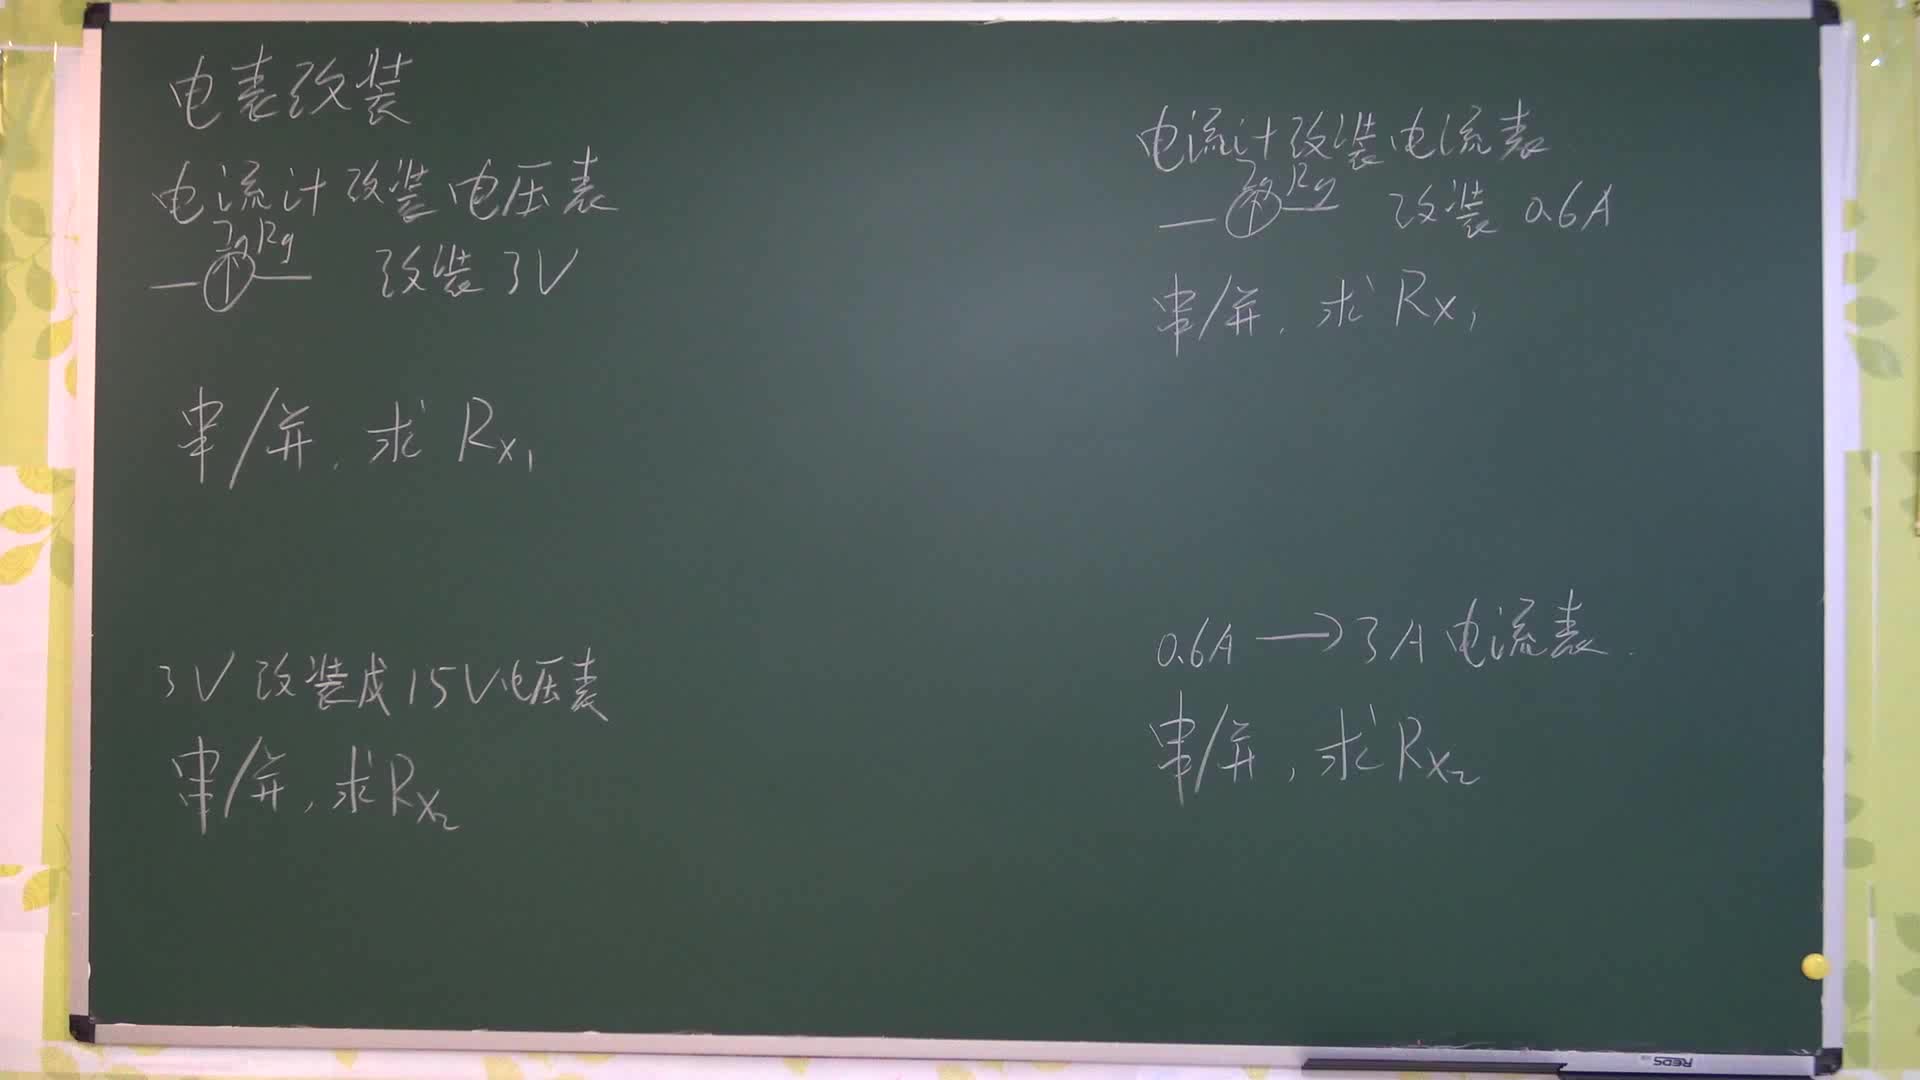 电表改装
电流计改装电压表
Ig Rg
改装3V
串/并，求Rx1
3V改装成15V电压表
串/并，求Rx2
电流计改装电流表
Ig Rg
改装0.6A
串/并，求Rx1
0.6A→3A电流表
串/并，求Rx2
REDS